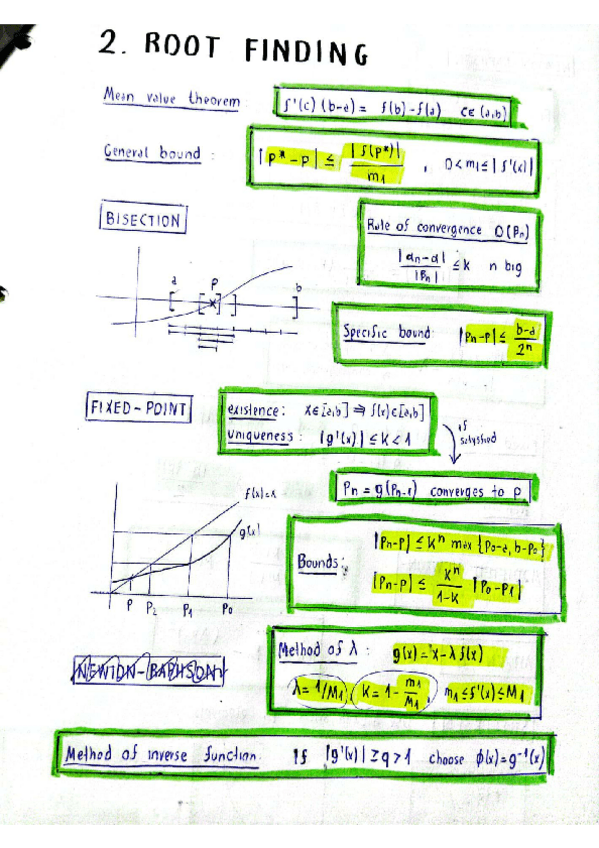 2. ROOT FINDING
Mean value theorem f'(c) (b-a) = f(b)-f(a) c∈ (a,b)
General bound : |p*-p| ≤ |f(p*)| / m1 , 0<m1≤|f'(x)|
BISECTION
Rate of convergence O(βn)
|αn-α| / |βn| ≤ k n big
a p b
Specific bound: |pn-p| ≤ b-a / 2^n
FIXED-POINT
existence: x∈[a,b] ⇒ f(x)∈[a,b]
uniqueness: |g'(x)| ≤ K < 1
if
satysfied
pn = g(pn-1) converges to p
f(x)=x
g(x)
P P2 P1 P0
Bounds:
|pn-p| ≤ K^n max {p0-a, b-p0}
|pn-p| ≤ K^n / 1-K |p0-p1|
Method of λ : g(x) = x-λ f(x)
λ = 1/M1, K = 1- m1 / M1, m1 ≤ f'(x) ≤ M1
NEWTON-RAPHSON
Method of inverse function: if |g'(x)| ≥ q > 1 choose φ(x)=g^-1(x)